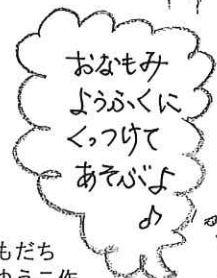 おなもみ
ようふくに
くっつけて
あそぶよ
♪
もだち
ゆうこ作